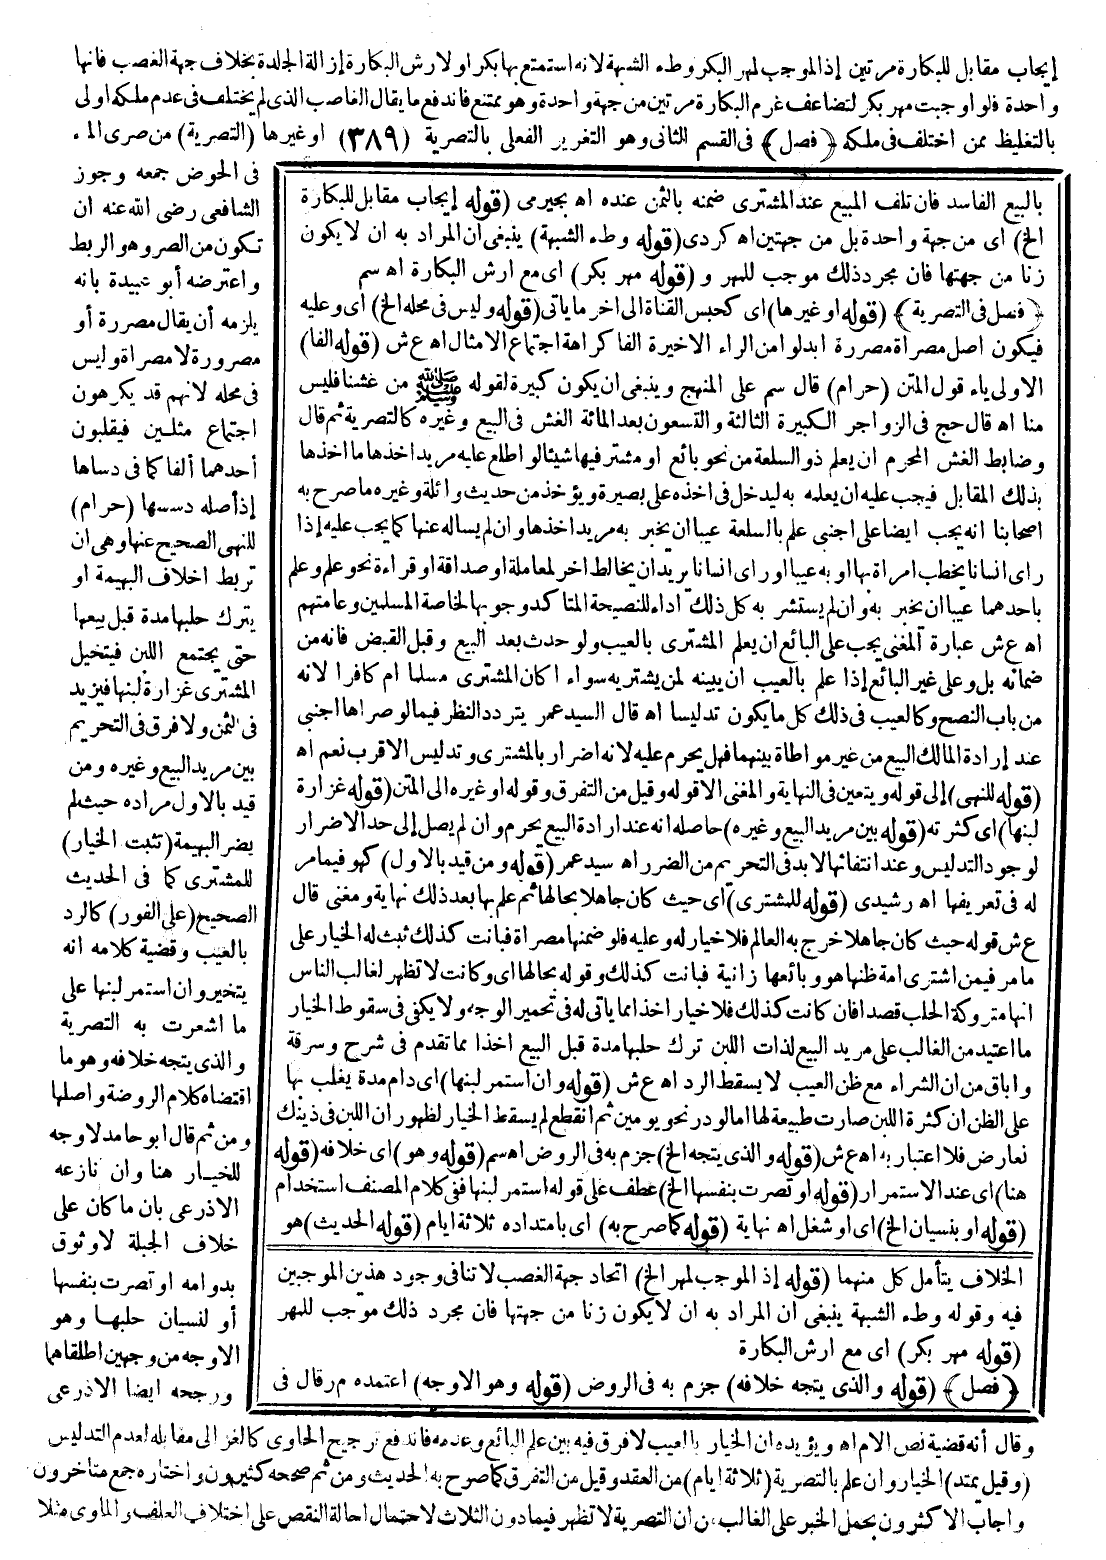 إيجاب مقابل للبكارة مرتين إذ الموجب لمهر البكر وطء الشبهة لانه استمتع بها بكرا ولارش البكارة إزالة الجلدة بخلاف جهة الغصب فانها
واحدة فلو اوجبت مهر بكر لتضاعف غرم البكارة مرتين من جهة واحدة وهو ممتنع فاندفع ما يقال الغاصب الذى لم يختلف فى عدم ملكه اولى
بالتغليظ ممن اختلف فى ملكه ﴿فصل﴾ فى القسم الثانى وهو التغرير الفعلى بالتصرية (٣٨٩) اوغيرها (التصرية) من صرى الماء
فى الحوض جمعه وجوز
الشافعى رضى الله عنه ان
تكون من الصر وهو الربط
واعترضه أبو عبيدة بانه
يلزمه أن يقال مصررة أو
مصرورة لا مصراة وليس
فى محله لانهم قد يكرهون
اجتماع مثلين فيقلبون
أحدهما ألفا كما فى دساها
إذ أصله دسسها (حرام)
للنهى الصحيح عنها وهى ان
تربط اخلاف البهيمة او
يترك حلبها مدة قبل بيعها
حتى يجتمع اللبن فيتخيل
المشترى غزارة لبنها فيزيد
فى الثمن ولا فرق فى التحريم
بين مريد البيع وغيره ومن
قيد بالاول مراده حيث لم
يضر البهيمة (تثبت الخيار)
للمشترى كما فى الحديث
الصحيح (على الفور) كالرد
بالعيب وقضية كلامه انه
يتخير وان استمر لبنها على
ما اشعرت به التصرية
والذى يتجه خلافه وهو ما
اقتضاه كلام الروضة واصلها
ومن ثم قال ابو حامد لا وجه
للخيار هنا وان نازعه
الاذرعى بان ما كان على
خلاف الجبلة لا وثوق
بدوامه او تصرت بنفسها
أو لنسيان حلبها وهو
الاوجه من وجهين اطلقاهما
ورجحه ايضا الاذرعى
وقال أنه قضية نص الام اه ويؤيده ان الخيار بالعيب لا فرق فيه بين علم البائع وعدمه فاندفع ترجيح الحاوى كالغزالى مقابله لعدم التدليس
(وقيل يمتد) الخيار وان علم بالتصرية (ثلاثة ايام) من العقد وقيل من التفرق كما صرح به الحديث ومن ثم صححه كثيرون واختاره جمع متاخرون
واجاب الاكثرون بحمل الخبر على الغالب من ان التصرية لا تظهر فيما دون الثلاث لاحتمال احالة النقص على اختلاف العلف والماوى مثلا
بالبيع الفاسد فان تلف المبيع عند المشترى ضمنه بالثمن عنده اه بجيرمى (قوله إيجاب مقابل للبكارة
الخ) اى من جهة واحدة بل من جهتين اه كردى (قوله وطء الشبهة) ينبغى أن المراد به ان لا يكون
زنا من جهتها فان مجرد ذلك موجب للمهر و (قوله مهر بكر) اى مع ارش البكارة اه سم
﴿فصل فى التصرية﴾ (قوله او غيرها) اى كحبس القناة الى اخر ما ياتى (قوله وليس فى محله الخ) اى وعليه
فيكون اصل مصراة مصررة ابدلوا من الراء الاخيرة الفا كراهة اجتماع الامثال اه ع ش (قوله الفا)
الاولى ياء قول المتن (حرام) قال سم على المنهج وينبغى ان يكون كبيرة لقوله ﷺ من غشنا فليس
منا اه قال حج فى الزواجر الكبيرة الثالثة والتسعون بعد المائة الغش فى البيع وغيره كالتصرية ثم قال
وضابط الغش المحرم ان يعلم ذو السلعة من نحو بائع او مشتر فيها شيئا لو اطلع عليه مريد اخذها ما اخذها
بذلك المقابل فيجب عليه ان يعلمه به ليدخل فى اخذه على بصيرة ويؤخذ من حديث واثلة وغيره ما صرح به
اصحابنا انه يجب ايضا على اجنبى علم بالسلعة عيبا ان يخبر به مريد اخذها وان لم يساله عنها كما يجب عليه إذا
راى انسانا يخطب امراة بها او به عيبا او راى انسانا يريد ان يخالط اخر لمعاملة او صداقة او قراءة نحو علم وعلم
باحدهما عيبا ان يخبر به وان لم يستشر به كل ذلك اداء للنصيحة المتاكد وجوبها لخاصة المسلمين وعامتهم
اه ع ش عبارة المغنى يجب على البائع ان يعلم المشترى بالعيب ولو حدث بعد البيع وقبل القبض فانه من
ضمانه بل وعلى غير البائع إذا علم بالعيب ان يبينه لمن يشتريه سواء اكان المشترى مسلما ام كافرا لانه
من باب النصح وكالعيب فى ذلك كل ما يكون تدليسا اه قال السيد عمر يتردد النظر فيما لو صراها اجنبى
عند إرادة المالك البيع من غير مواطاة بينهما فهل يحرم عليه لانه اضرار بالمشترى وتدليس الاقرب نعم اه
(قوله للنهى) إلى قوله ويتعين فى النهاية والمغنى الا قوله وقيل من التفرق وقوله او غيره الى المتن (قوله غزارة
لبنها) اى كثرته (قوله بين مريد البيع وغيره) حاصله انه عند ارادة البيع يحرم وان لم يصل إلى حد الاضرار
لوجود التدليس وعند انتفائها لا بد فى التحريم من الضرر اه سيد عمر (قوله ومن قيد بالاول) كهو فيما مر
له فى تعريفها اه رشيدى (قوله للمشترى) اى حيث كان جاهلا بحالها ثم علم بها بعد ذلك نهاية ومغنى قال
ع ش قوله حيث كان جاهلا خرج به العالم فلا خيار له وعليه فلو ضمنها مصراة فبانت كذلك ثبت له الخيار على
ما مر فيمن اشترى امة ظنها هو وبائعها زانية فبانت كذلك وقوله بحالها اى وكانت لا تظهر لغالب الناس
انها متروكة الحلب قصدا فان كانت كذلك فلا خيار اخذا مما ياتى له فى تحمير الوجه ولا يكفى فى سقوط الخيار
ما اعتيد من الغالب على مريد البيع لذات اللبن ترك حلبها مدة قبل البيع اخذا مما تقدم فى شرح وسرقة
واباق من ان الشراء مع ظن العيب لا يسقط الرد اه ع ش (قوله وان استمر لبنها) اى دام مدة يغلب بها
على الظن ان كثرة اللبن صارت طبيعة لها اما لو در نحو يومين ثم انقطع لم يسقط الخيار لظهور ان اللبن فى ذينك
لعارض فلا اعتبار به اه ع ش (قوله والذى يتجه الخ) جزم به فى الروض اه سم (قوله وهو) اى خلافه (قوله
هنا) اى عند الاستمرار (قوله او تصرت بنفسها الخ) عطف على قوله استمر لبنها ففى كلام المصنف استخدام
(قوله او بنسيان الخ) اى او شغل اه نهاية (قوله كما صرح به) اى بامتداده ثلاثة ايام (قوله الحديث) هو
الخلاف يتأمل كل منهما (قوله إذ الموجب لمهر الخ) اتحاد جهة الغصب لا تنافى وجود هذين الموجبين
فيه وقوله وطء الشبهة ينبغى ان المراد به ان لا يكون زنا من جهتها فان مجرد ذلك موجب للمهر
(قوله مهر بكر) اى مع ارش البكارة
﴿فصل﴾ (قوله والذى يتجه خلافه) جزم به فى الروض (قوله وهو الاوجه) اعتمده م ر قال فى